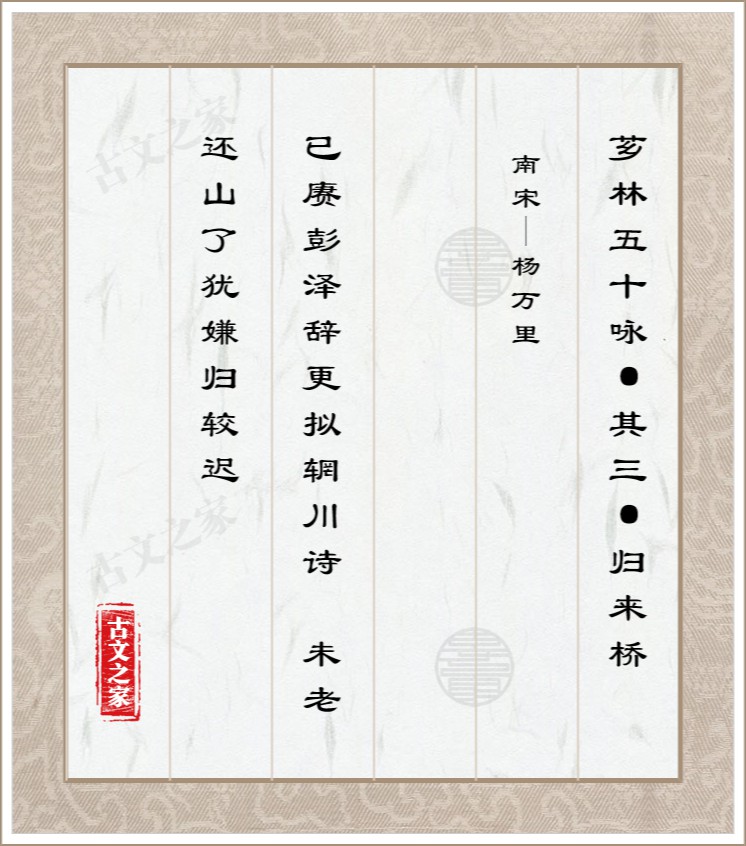 芗林五十咏•其三•归来桥
南宋—杨万里
已赓彭泽辞更拟辋川诗　未老
还山了犹嫌归较迟
古文之家
古文之家
古文之家